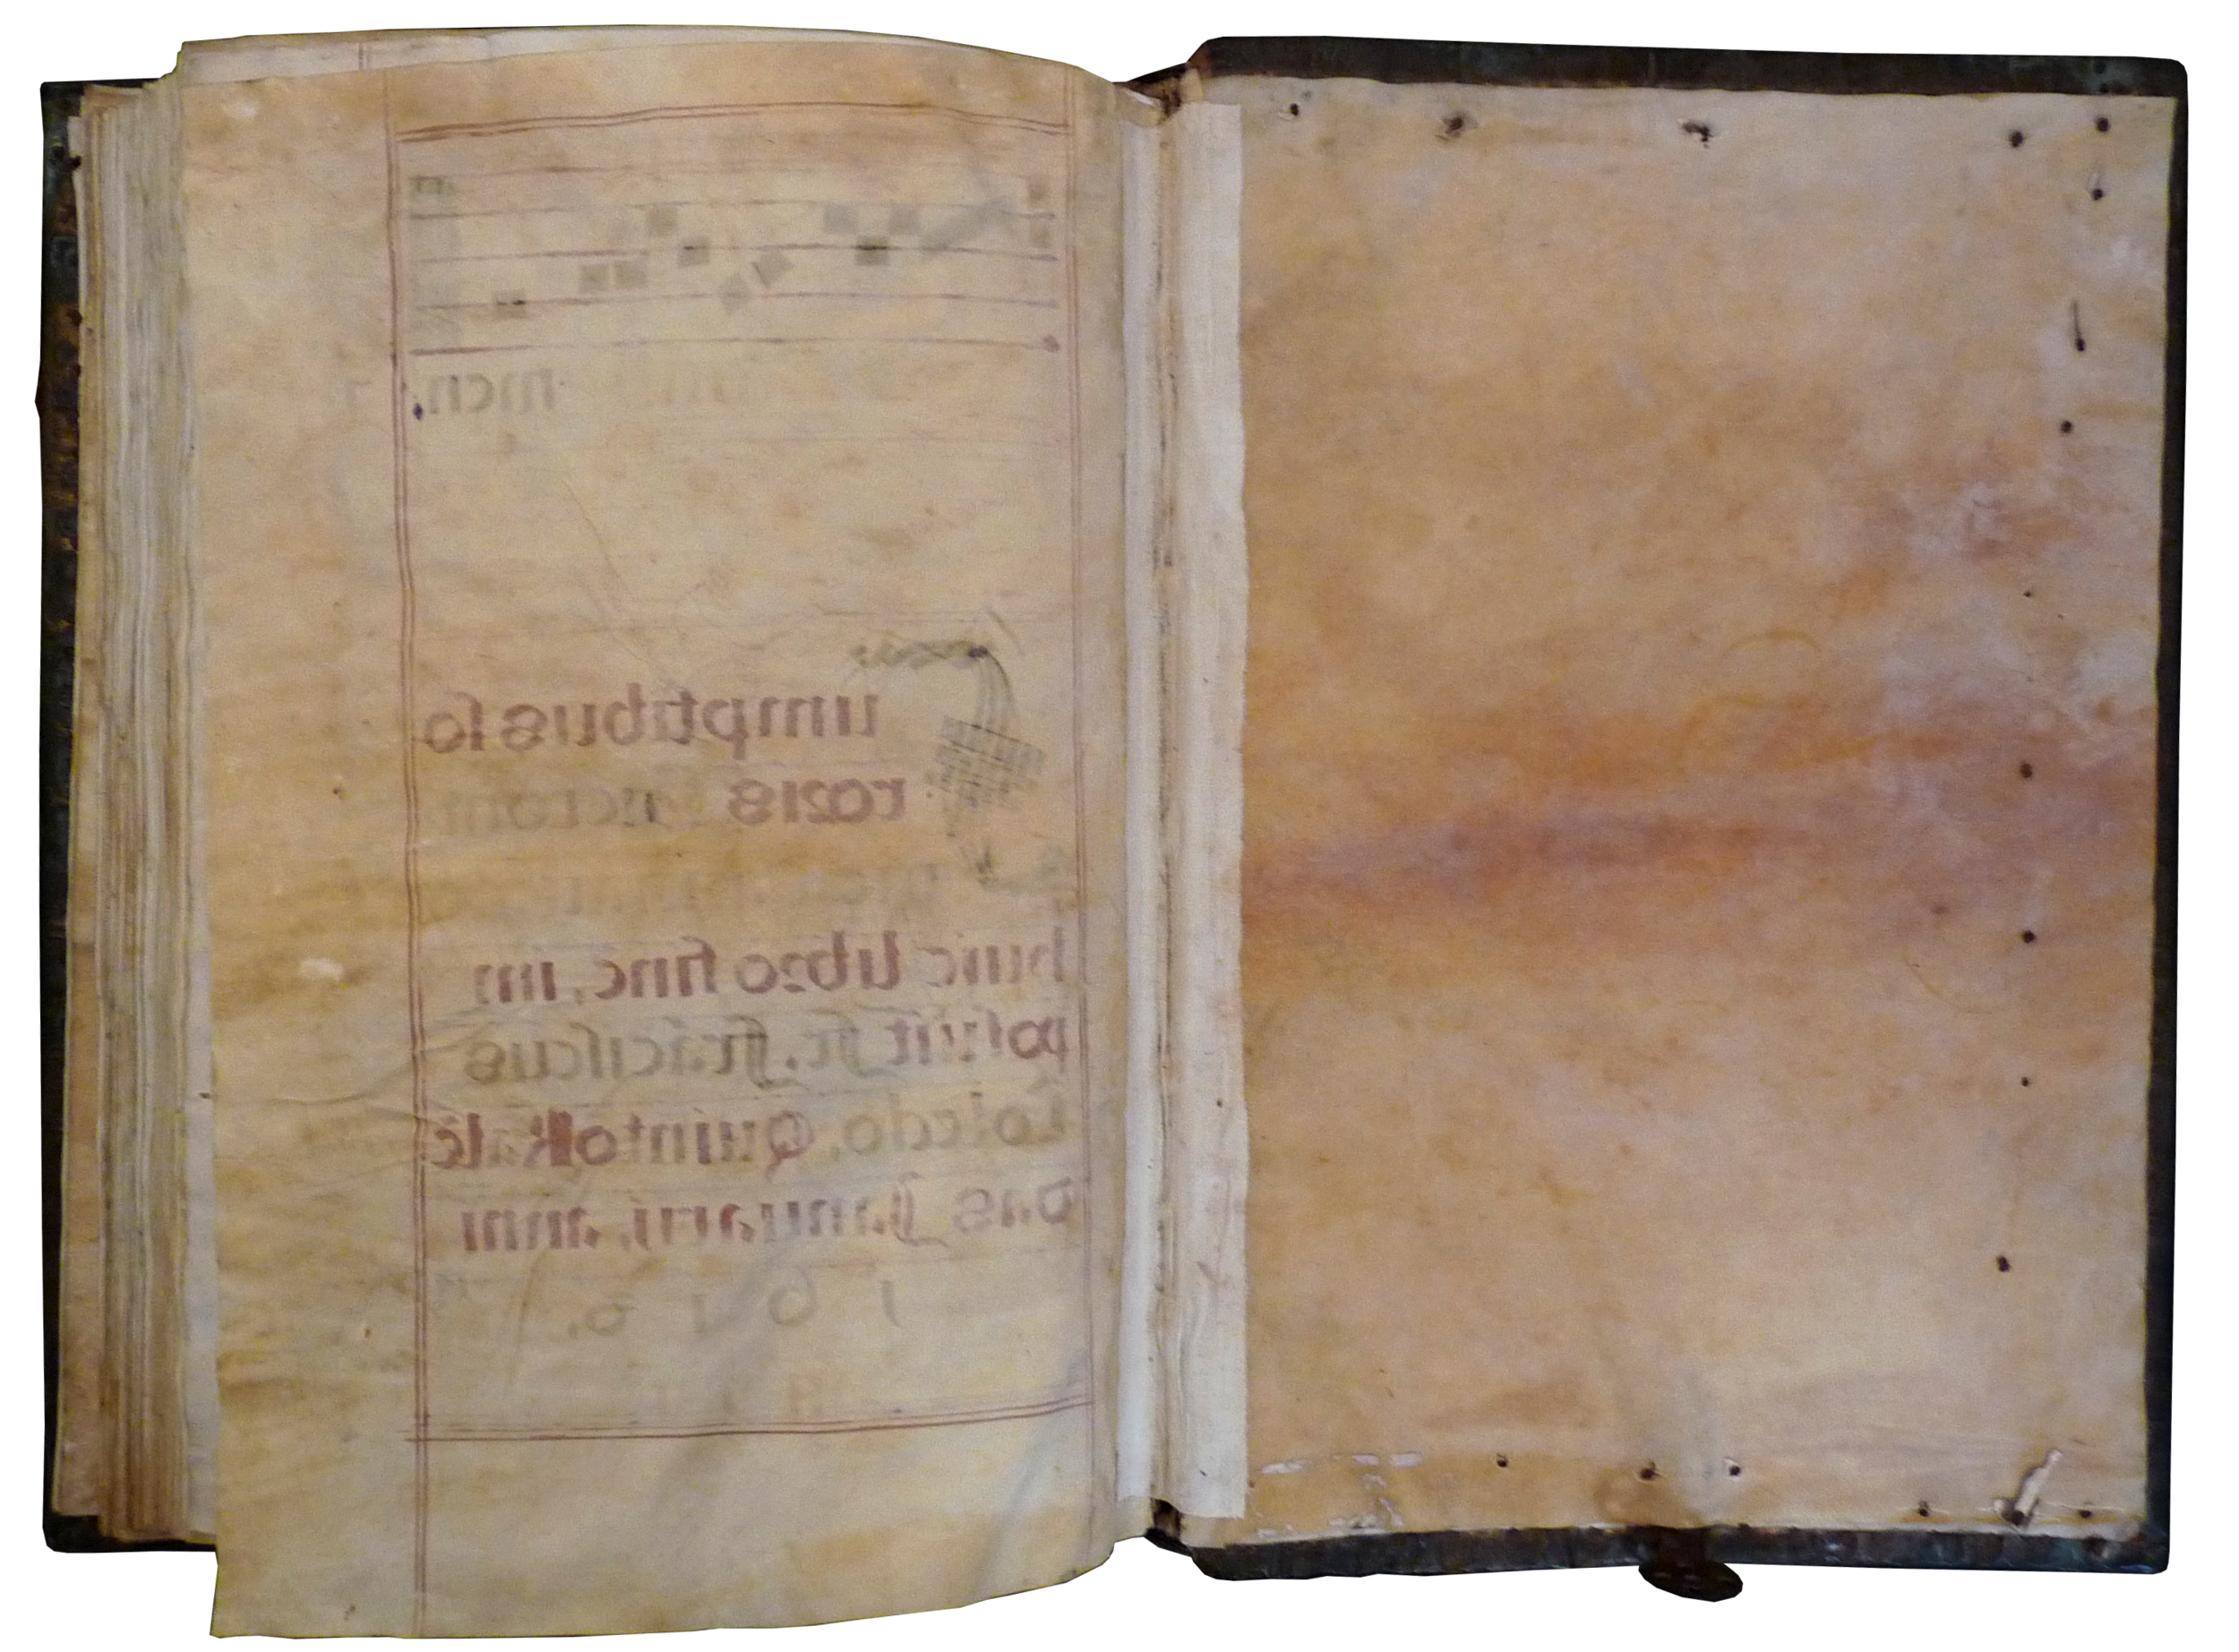 men.
Sumptibus so
roris
huic libro finē, im
posuit fr. frāciscus
Toledo, Quinto Kalē
das Januarij, anni
1 6 1 0.